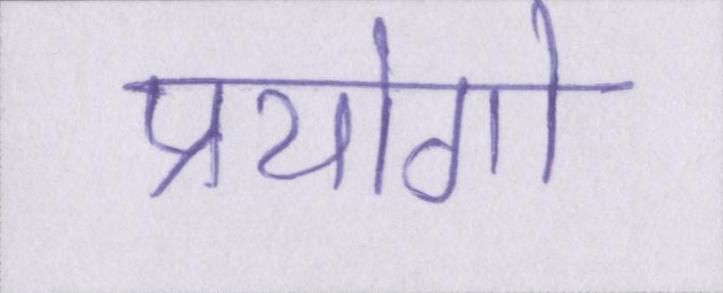 प्रयोगो